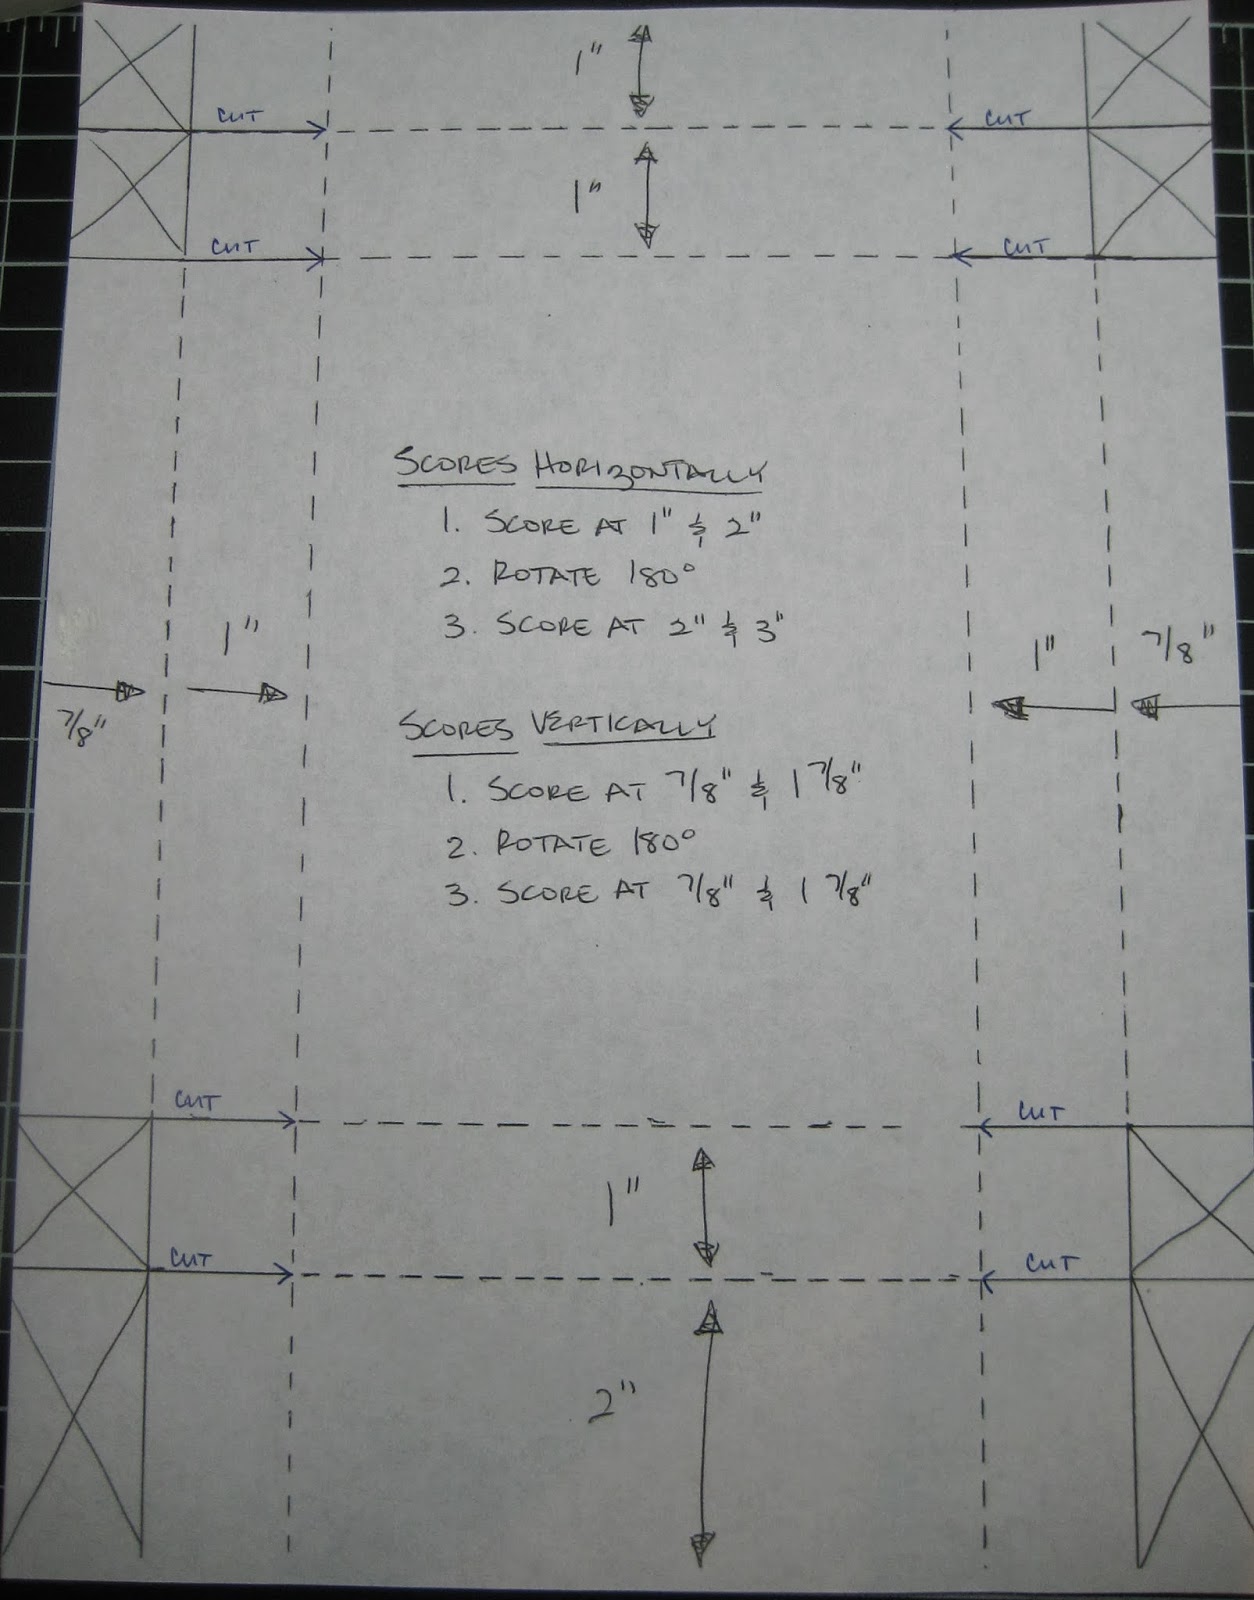 1"
CUT CUT
1"
CUT CUT
SCORES HORIZONTALLY
1. SCORE AT 1" & 2"
2. ROTATE 180°
3. SCORE AT 2" & 3"
1" 1" 7/8"
7/8"
SCORES VERTICALLY
1. SCORE AT 7/8" & 1 7/8"
2. ROTATE 180°
3. SCORE AT 7/8" & 1 7/8"
CUT CUT
1"
CUT CUT
2"